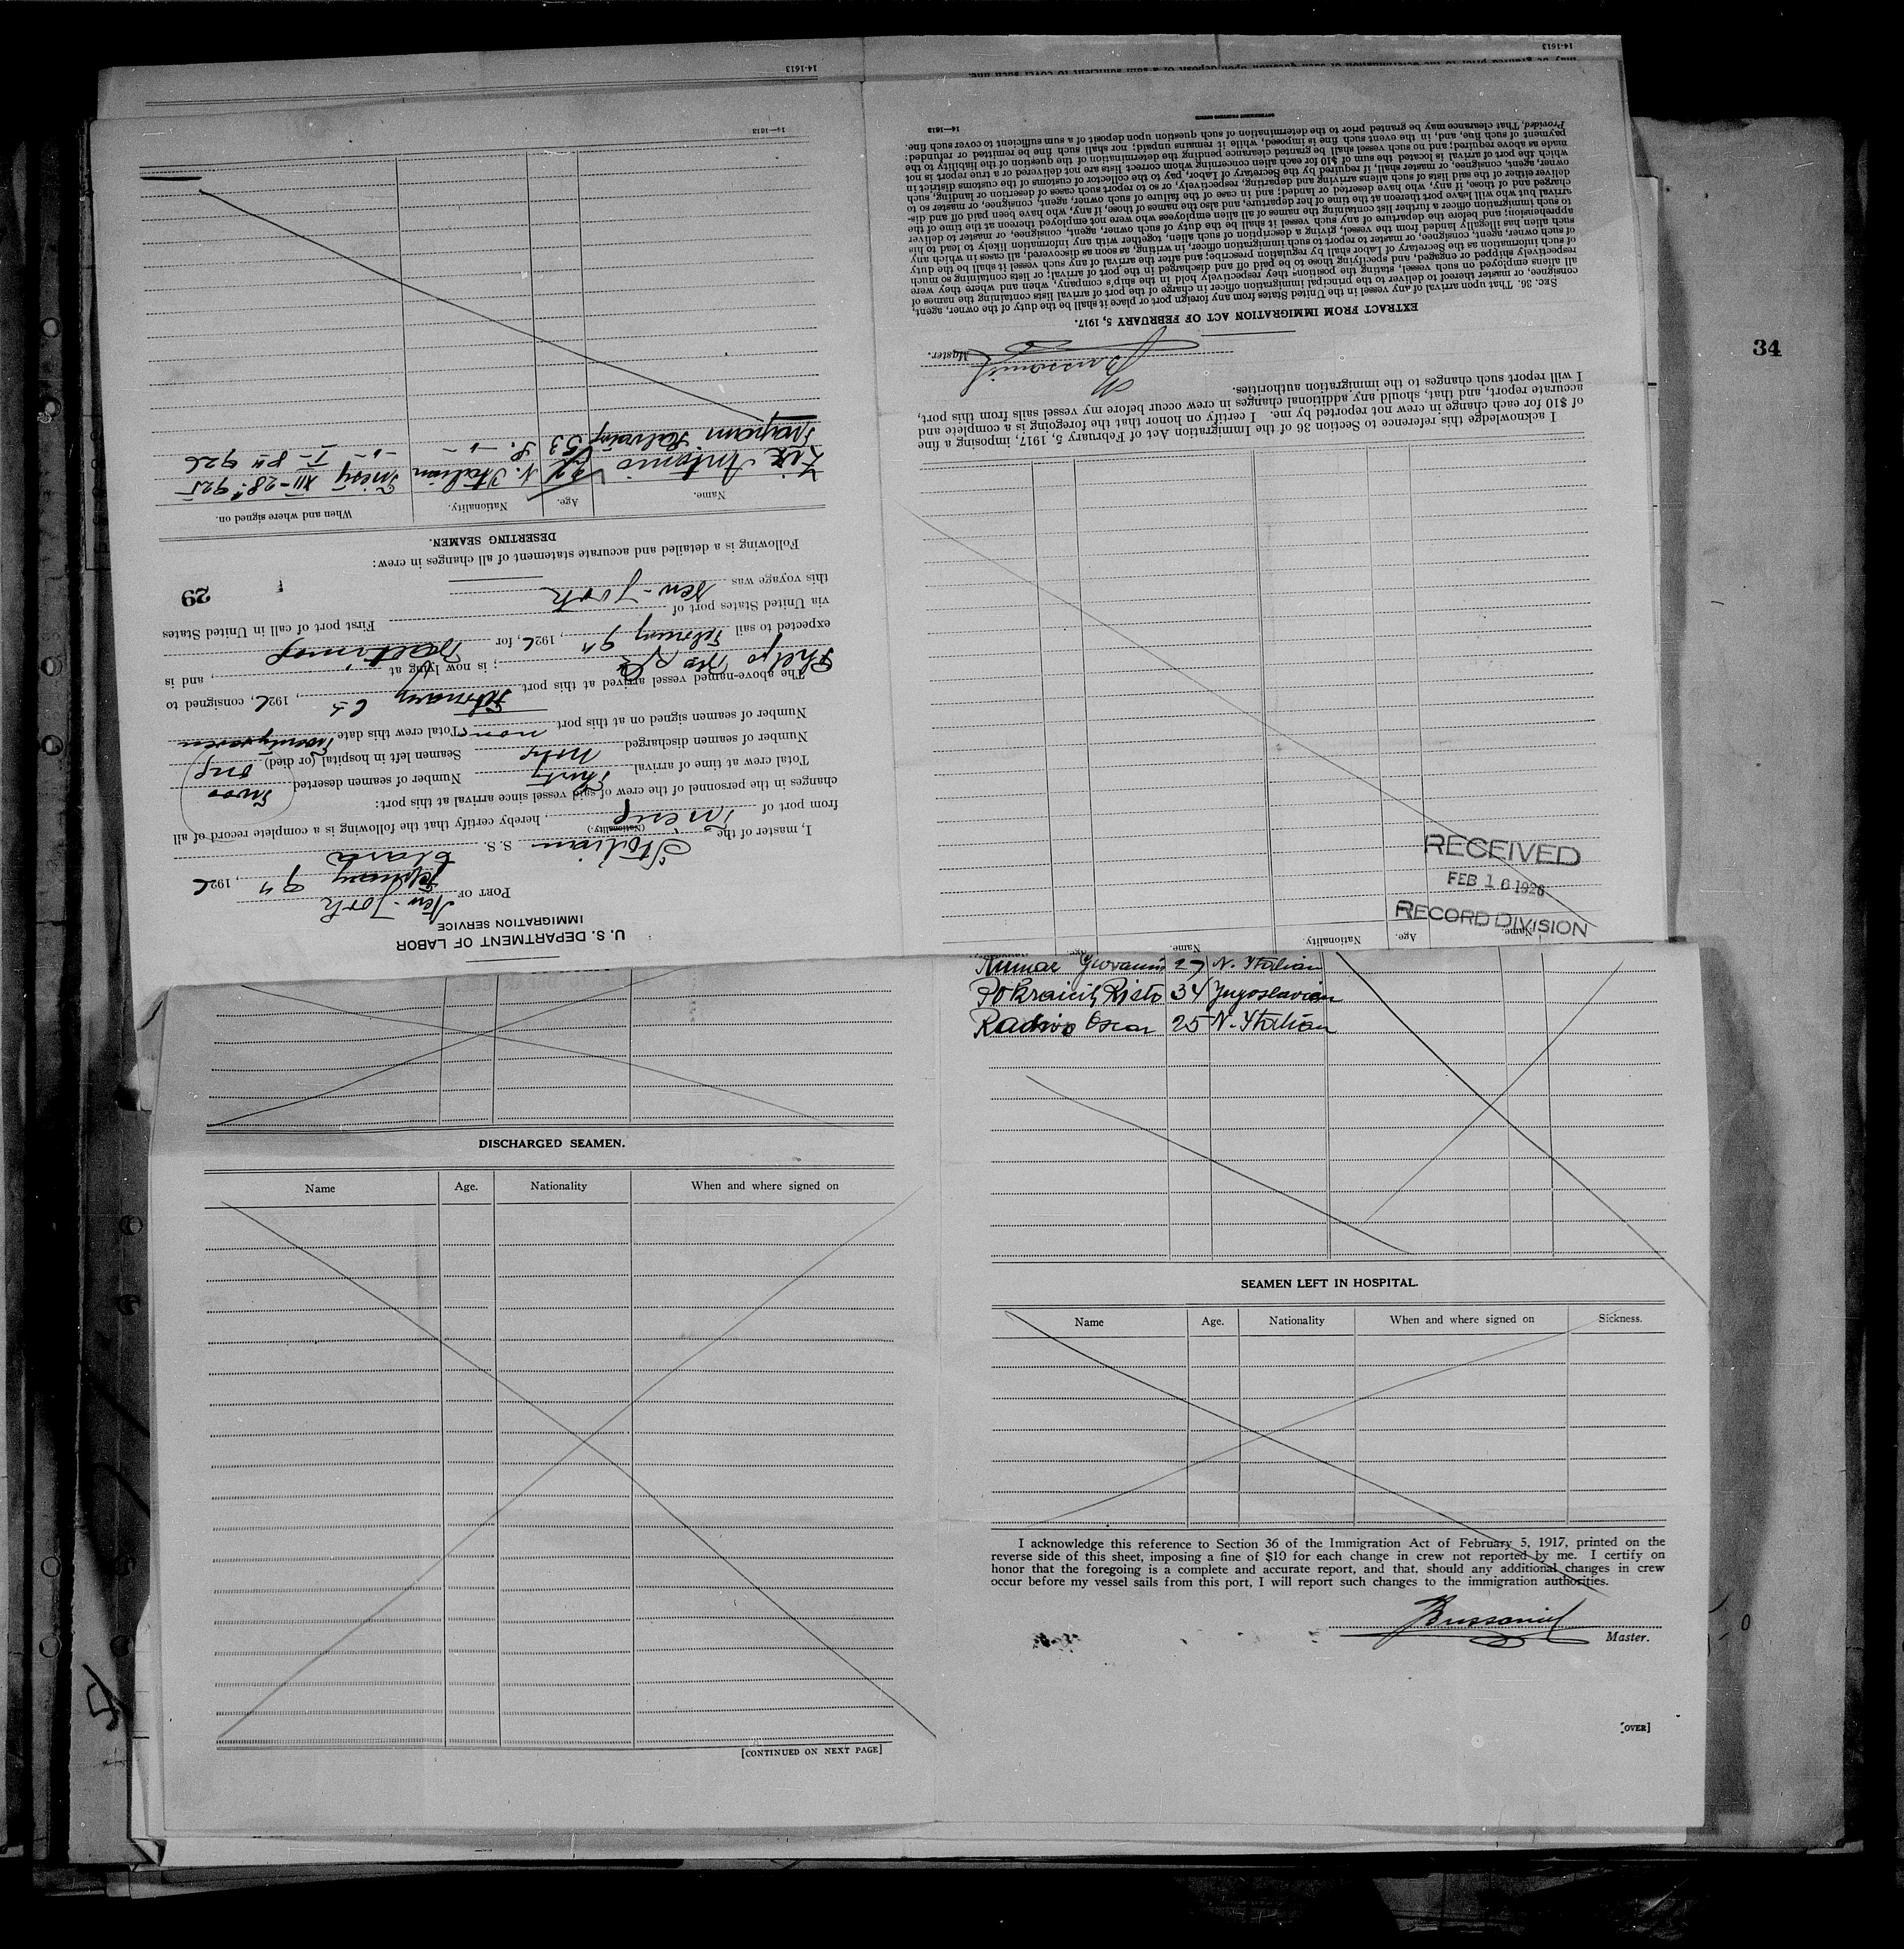 U. S. DEPARTMENT OF LABOR
IMMIGRATION SERVICE
PORT OF New-York
February 9th, 1926
I, master of the Italian S. S. Clara
(Nationality.)
from port of Trieste, hereby certify that the following is a complete record of all
changes in the personnel of the crew of said vessel since arrival at this port:
Total crew at time of arrival Thirty Number of seamen deserted Twoo
Number of seamen discharged Seamen left in hospital (or died) one
Number of seamen signed on at this port none Total crew this date Twentyseven
The above-named vessel arrived at this port February, 1926, consigned to
Phelps Bros & Co; is now lying at, and is
expected to sail February 9th, 1926, for Baltimore
via United States port of First port of call in United States
this voyage was New-York
29
Following is a detailed and accurate statement of all changes in crew:
DESERTING SEAMEN.
Name. Age. Nationality. When and where signed on.
Antonio N. Italian XII-28th 925
53 S. -"- -"- I-8th 926
14-1613
14—1613
14-1613
Name. Age. Nationality. Name.
RECEIVED
FEB 16 1926
RECORD DIVISION
I acknowledge this reference to Section 36 of the Immigration Act of February 5, 1917, imposing a fine
of $10 for each change in crew not reported by me. I certify on honor that the foregoing is a complete and
accurate report, and that, should any additional changes in crew occur before my vessel sails from this port,
I will report such changes to the immigration authorities.
Master.
EXTRACT FROM IMMIGRATION ACT OF FEBRUARY 5, 1917.
SEC. 36. That upon arrival of any vessel in the United States from any foreign port or place it shall be the duty of the owner, agent,
consignee, or master thereof to deliver to the principal immigration officer in charge of the port of arrival lists containing the names of
all aliens employed on such vessel, stating the positions they respectively hold in the ship's company, when and where they were
respectively shipped or engaged, and specifying those to be paid off and discharged in the port of arrival; or lists containing so much
of such information as the Secretary of Labor shall by regulation prescribe; and after the arrival of any such vessel it shall be the duty
of such owner, agent, consignee, or master to report to such immigration officer, in writing, as soon as discovered, all cases in which any
such alien has illegally landed from the vessel, giving a description of such alien, together with any information likely to lead to his
apprehension; and before the departure of any such vessel it shall be the duty of such owner, agent, consignee, or master to deliver
to such immigration officer a further list containing the names of all alien employees who were not employed thereon at the time of the
arrival but who will leave port thereon at the time of her departure, and also the names of those, if any, who have been paid off and dis-
charged and of those, if any, who have deserted or landed; and in case of the failure of such owner, agent, consignee, or master so to
deliver either of the said lists of such aliens arriving and departing, respectively, or so to report such cases of desertion or landing, such
owner, agent, consignee, or master shall, if required by the Secretary of Labor, pay to the collector of customs of the customs district in
which the port of arrival is located the sum of $10 for each alien concerning whom correct lists are not delivered or a true report is not
made as above required; and no such vessel shall be granted clearance pending the determination of the question of the liability to the
payment of such fine, and, in the event such fine is imposed, while it remains unpaid; nor shall such fine be remitted or refunded:
Provided, That clearance may be granted prior to the determination of such question upon deposit of a sum sufficient to cover such fine.
14—1613
34
DISCHARGED SEAMEN.
Name Age. Nationality When and where signed on
[CONTINUED ON NEXT PAGE]
Giovanni 27 N. Italian
Risto 34 Jugoslavian
Oscar 25 N. Italian
SEAMEN LEFT IN HOSPITAL.
Name Age. Nationality When and where signed on Sickness.
I acknowledge this reference to Section 36 of the Immigration Act of February 5, 1917, printed on the
reverse side of this sheet, imposing a fine of $10 for each change in crew not reported by me. I certify on
honor that the foregoing is a complete and accurate report, and that, should any additional changes in crew
occur before my vessel sails from this port, I will report such changes to the immigration authorities.
Master.
[OVER]